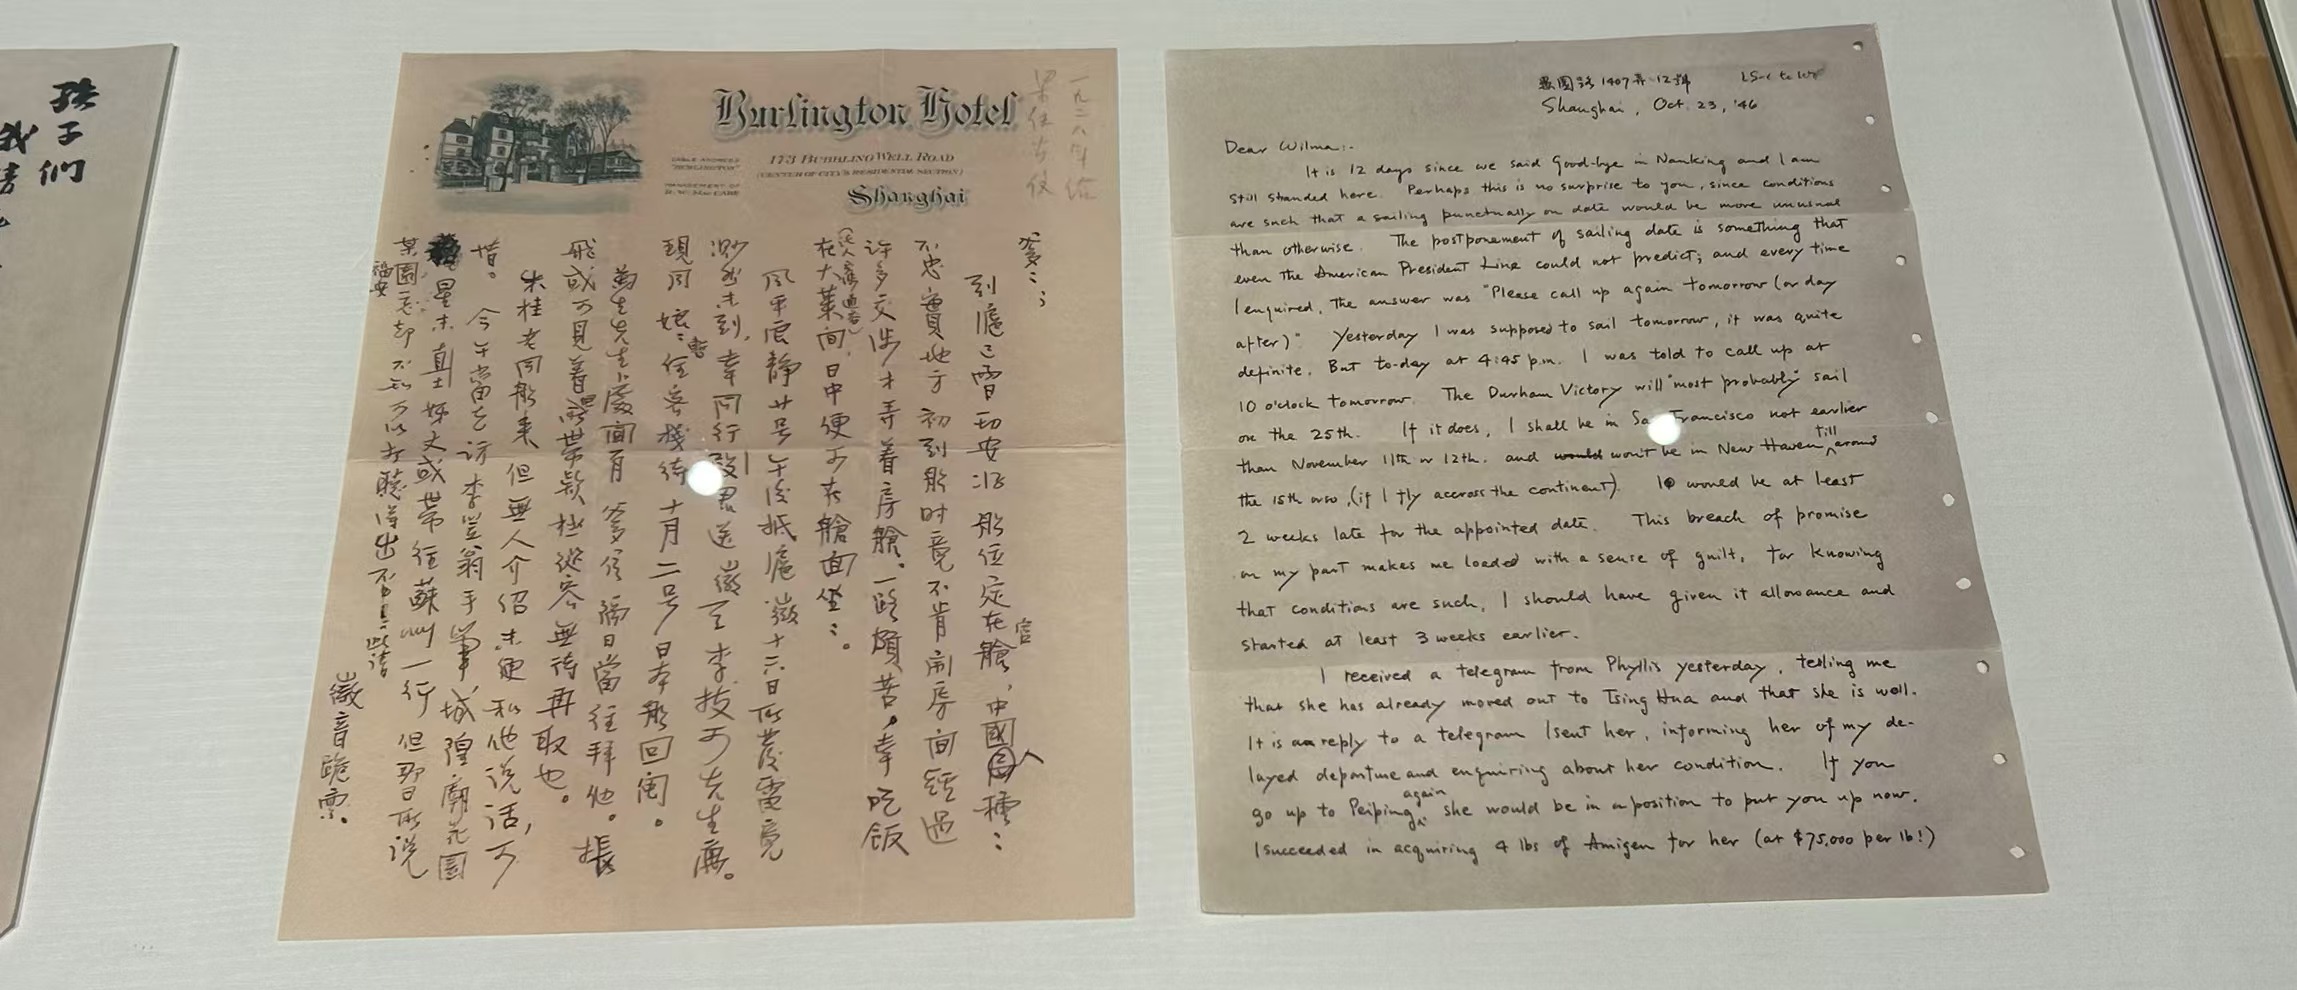 孩子們
我
Burlington Hotel
CABLE ADDRESS
"BURLINGTON"
MANAGEMENT OF
173 BUBBLING WELL ROAD
(CENTER OF CITY'S RESIDENTIAL SECTION)
Shanghai
爹爹:
到滬已習切安 船位定在官艙,中國人種:
不忠實地方初到船時竟不肯開房間經過
許多交涉才弄着房艙。一路頗苦。幸吃飯
在大菜間,日中便可在艙面坐:。
風平浪靜廿号午後抵滬徽十六日所發電竟
渺然未到,幸同行 君送徽至李拔可先生廉。
現同娘:住客棧待十月二号日本船回閩。
先生處面有爹信 當往拜他。振
飛或可見着 帶款極從容無待再取也。
朱桂老同船來但無人介紹未便和他說話,可
惜。今午當去訪李 翁手 城隍廟花園
星末 姊丈或帶往蘇州一行但那日所説
某園 却不知可以打聽得出否 此請
福安
徽音跪禀。
愚園路1407弄12號
Shanghai, Oct. 23, '46
Dear Wilma:-
It is 12 days since we said Good-bye in Nanking and I am
still stranded here. Perhaps this is no surprise to you, since conditions
are such that a sailing punctually on date would be more unusual
than otherwise. The postponement of sailing date is something that
even the American President Line could not predict; and every time
I enquired, the answer was "Please call up again tomorrow (or day
after)" Yesterday I was supposed to sail tomorrow, it was quite
definite. But to-day at 4:45 p.m. I was told to call up at
10 o'clock tomorrow. The Durham Victory will "most probably" sail
on the 25th. If it does, I shall be in San Francisco not earlier
than November 11th or 12th. and would won't be in New Haven till around
the 15th or so, (if I fly accross the continent). I would be at least
2 weeks late for the appointed date. This breach of promise
on my part makes me loaded with a sense of guilt, for knowing
that conditions are such, I should have given it allowance and
started at least 3 weeks earlier.
I received a telegram from Phyllis yesterday, telling me
that she has already moved out to Tsing Hua and that she is well.
It is a reply to a telegram I sent her, informing her of my de-
layed departure and enquiring about her condition. If you
go up to Peiping again, she would be in a position to put you up now.
I succeeded in acquiring 4 lbs of Amigen for her (at $75,000 per lb!)